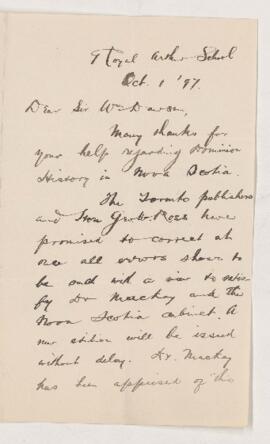 9 Royal Arthur School
Oct. 1 '97.
Dear Sir Wm Dawson,
Many thanks for
your help regarding Dominion
History in Nova Scotia.
The Toronto publishers
and Hon Geo. W. Ross have
promised to correct at
once all errors shown to
be such with a view to
by Dr Mackay and the
Nova Scotia cabinet. A
new edition will be issued
without delay. Dr. Mackay
has been apprised of the